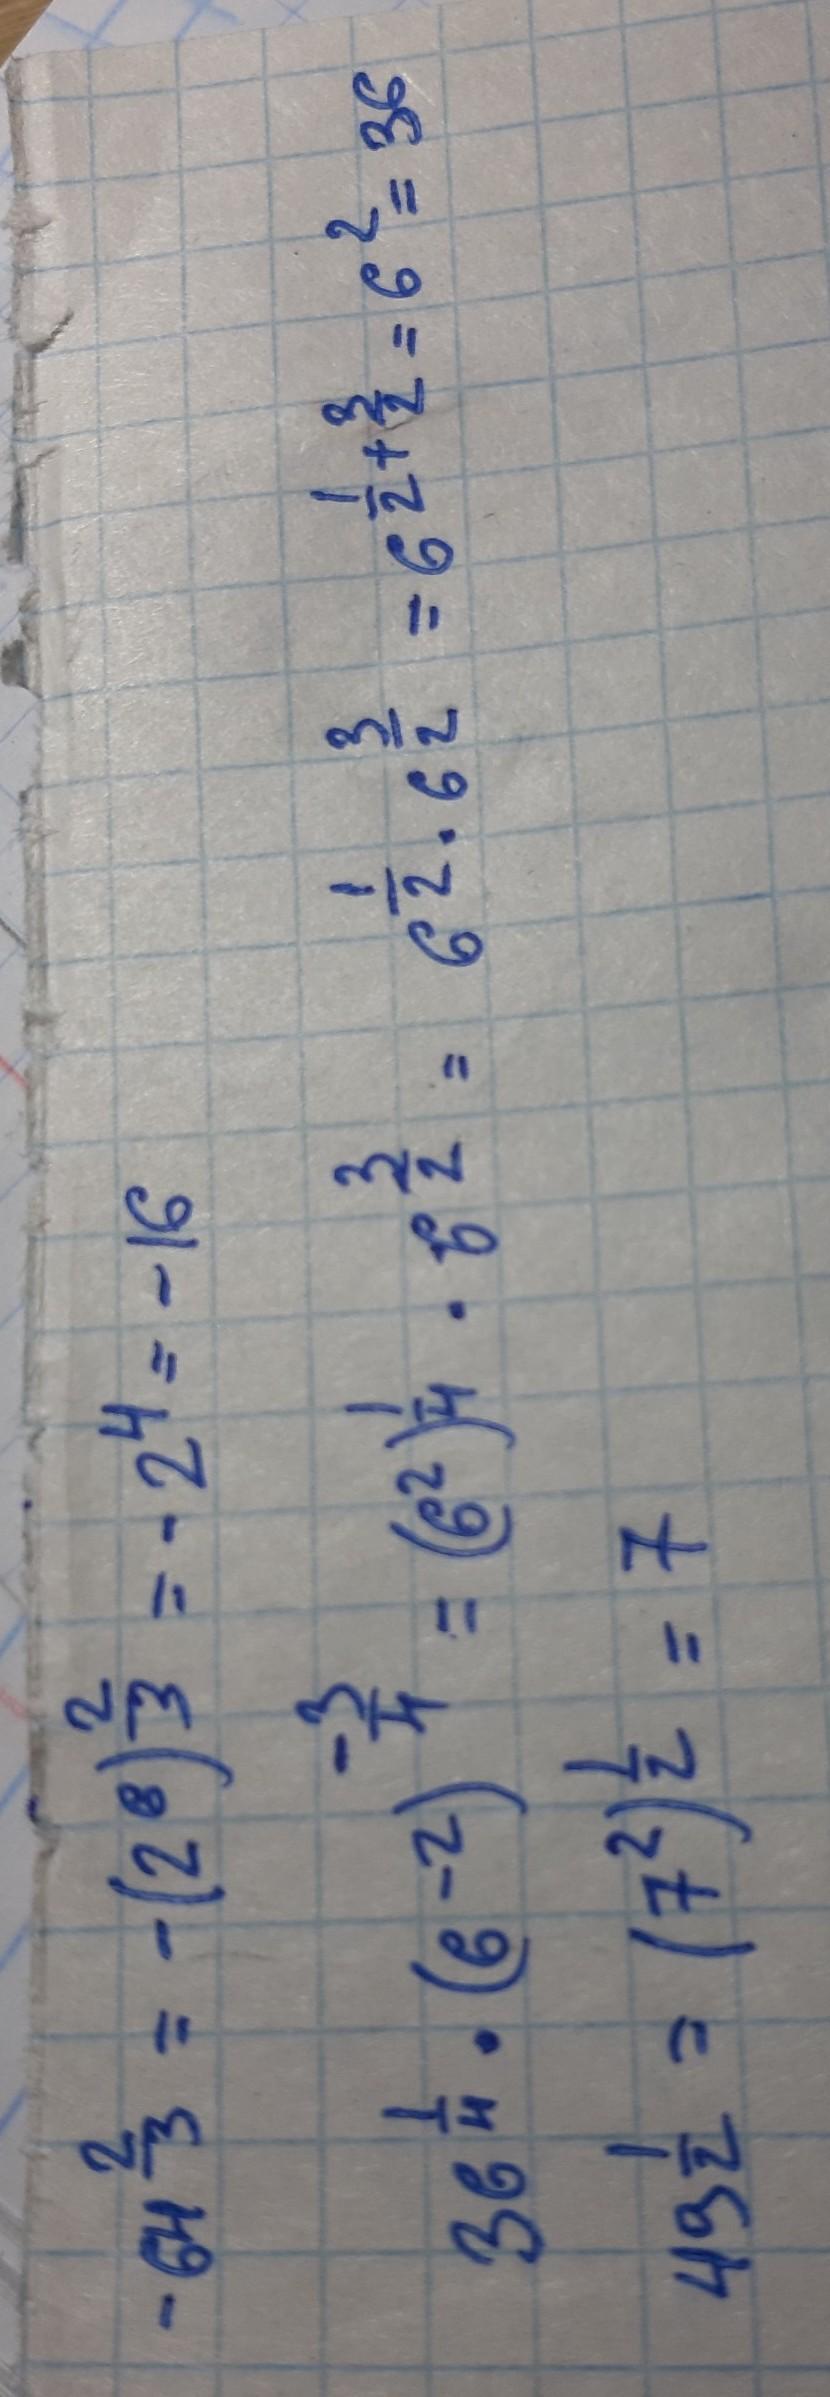 -64^(2/3) = -(2^8)^(2/3) = -2^4 = -16
36^(1/4) · (6^-2)^(-3/4) = (6^2)^(1/4) · 6^(3/2) = 6^(1/2) · 6^(3/2) = 6^(1/2+3/2) = 6^2 = 36
49^(1/2) = (7^2)^(1/2) = 7